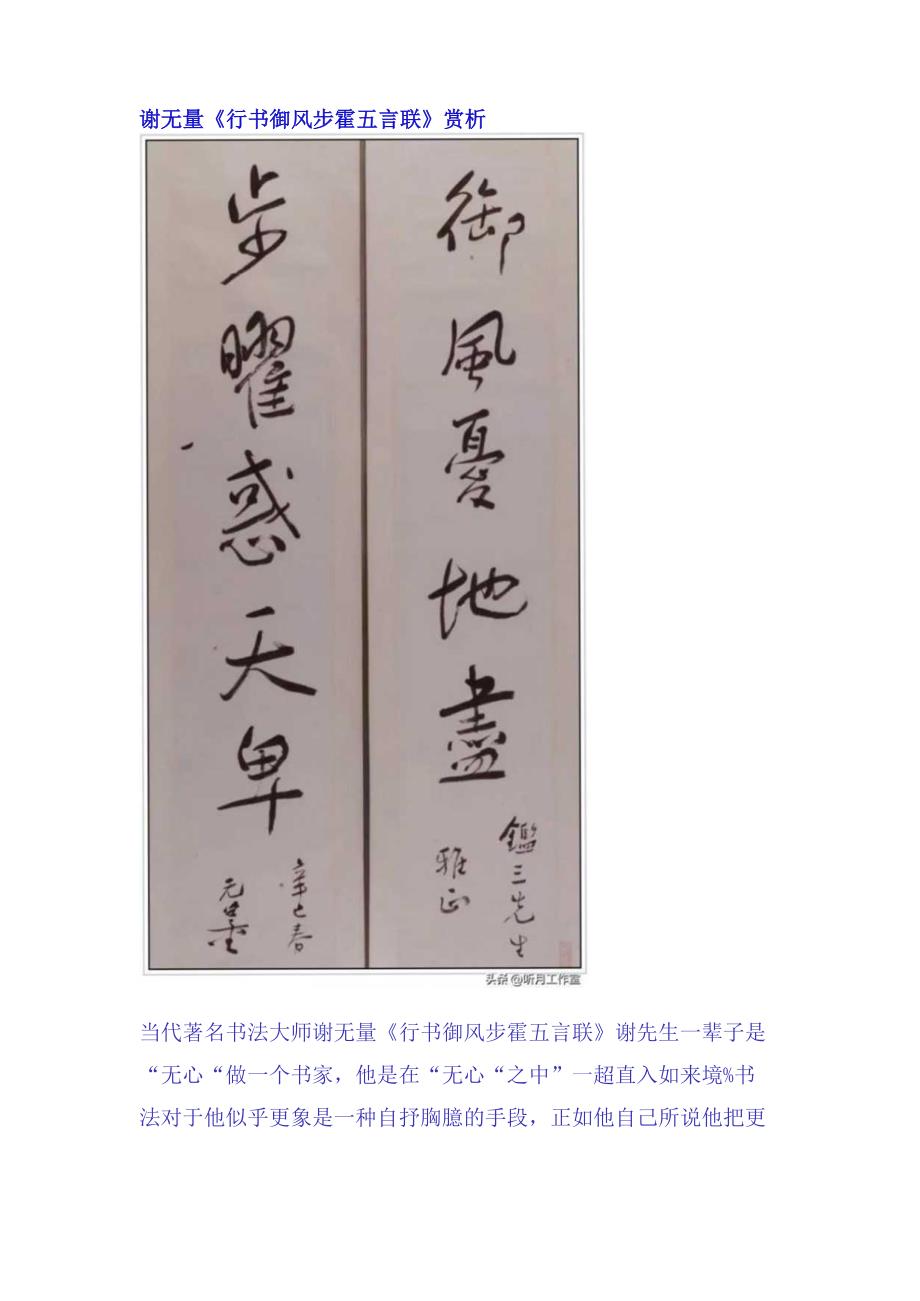 谢无量《行书御风步霍五言联》赏析
御風憂地盡
鑑三先生
雅正
步曜惑天卑
辛巳春
无量
头条@听月工作室
当代著名书法大师谢无量《行书御风步霍五言联》谢先生一辈子是
“无心“做一个书家，他是在“无心“之中”一超直入如来境%书
法对于他似乎更象是一种自抒胸臆的手段，正如他自己所说他把更